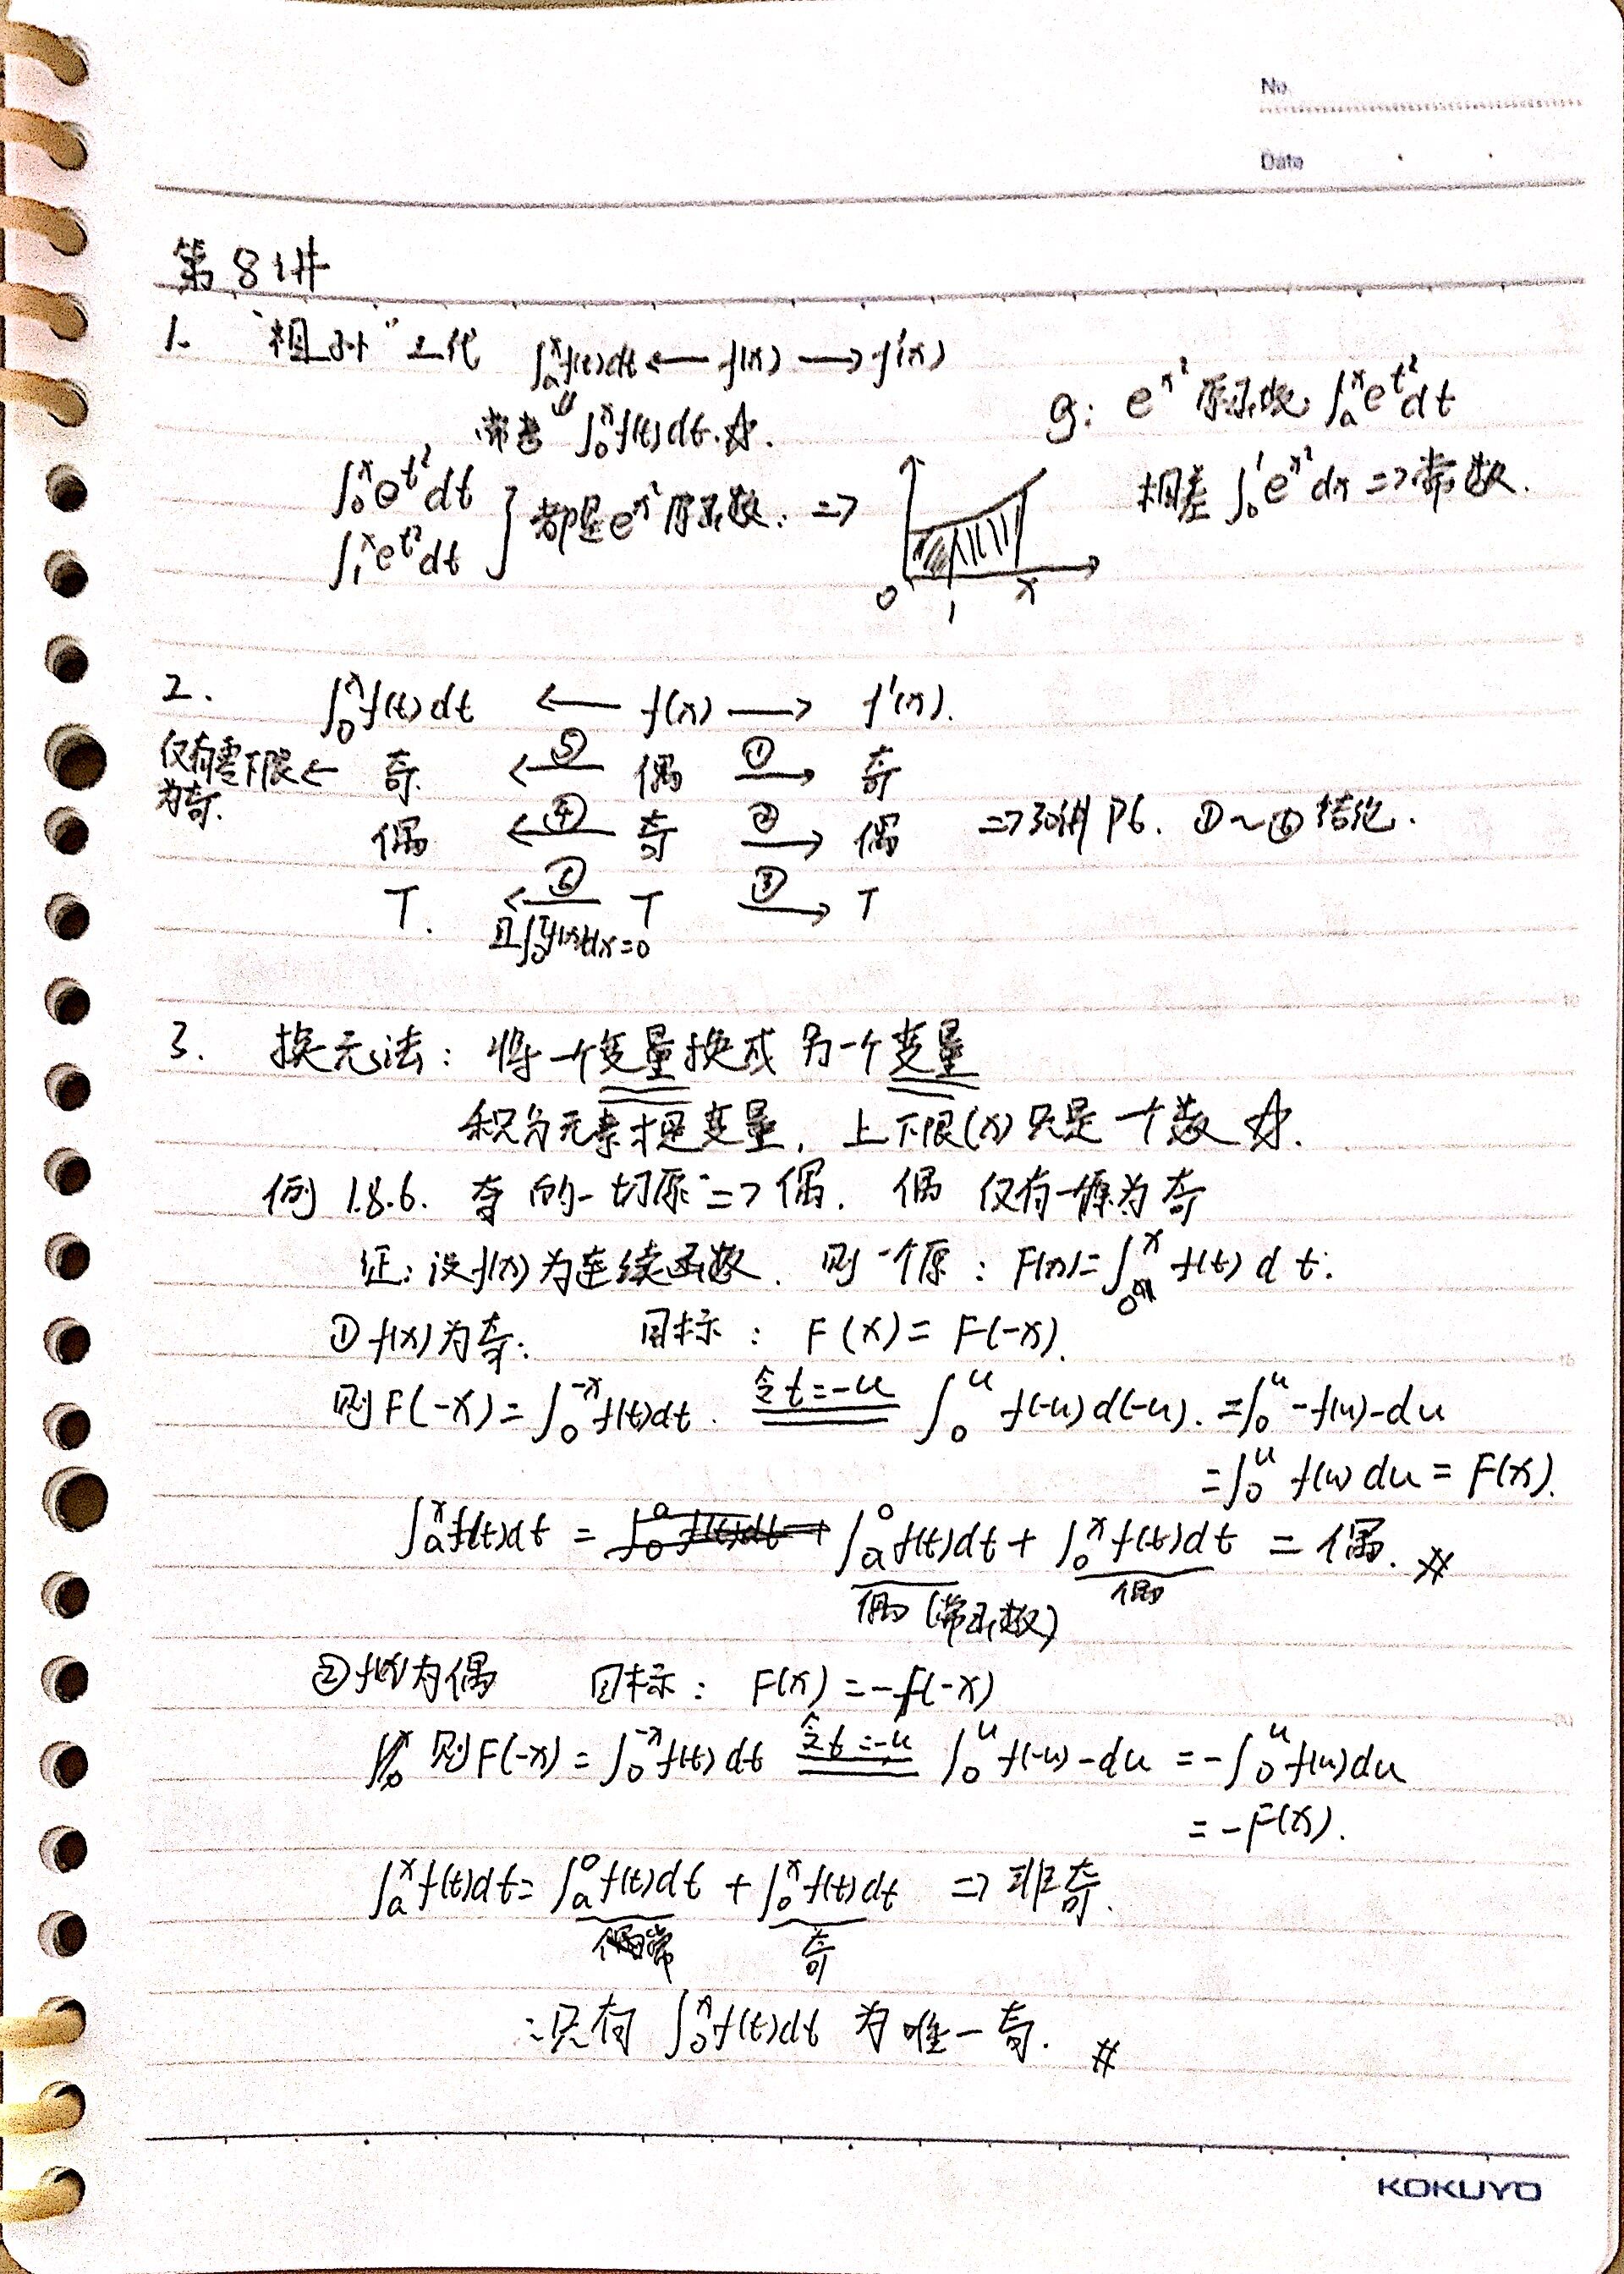 No.
Date
第8讲
1. "相对"三代 ∫ₐˣf(t)dt ← f(x) → f'(x)
常考 ∫₀ˣf(t)dt. ☆.
g: e^{x²} 原函数 ∫ₐˣe^{t²}dt
∫₀ˣe^{t²}dt
∫₁ˣe^{t²}dt } 都是e^{x²}原函数. ⇒
0 1 x
相差 ∫₀¹e^{x²}dx ⇒ 常数.
2. ∫₀ˣf(t)dt ← f(x) → f'(x).
仅有零下限为奇. ← 奇. ←⑤ 偶 ①→ 奇
偶 ←④ 奇 ②→ 偶 ⇒30讲 P6. ①~⑥结论.
T. ←⑥ T ③→ T
且∫₀ᵀf(x)dx=0
3. 换元法: 将一个变量换成另一个变量
积分元素才是变量, 上下限(x)只是一个数 ☆.
例 1.8.6. 奇的一切原 ⇒ 偶. 偶 仅有一原为奇
证: 设f(x)为连续函数. 则一个原: F(x)=∫₀ˣ f(t) dt.
① f(x)为奇: 目标: F(x)=F(-x).
则F(-x)=∫₀⁻ˣf(t)dt. 令t=-u ∫₀ᵘ f(-u)d(-u). =∫₀ᵘ -f(u)-du
=∫₀ᵘ f(u)du = F(x).
∫ₐˣf(t)dt = ∫ₐ⁰f(t)dt + ∫₀ˣf(t)dt = 偶. #
偶 (常函数) 偶
② f(x)为偶 目标: F(x)=-f(-x)
则F(-x)=∫₀⁻ˣf(t)dt 令t=-u ∫₀ᵘf(-u)-du = -∫₀ᵘf(u)du
= -F(x).
∫ₐˣf(t)dt= ∫ₐ⁰f(t)dt + ∫₀ˣf(t)dt ⇒ 非奇.
常 奇
∴只有 ∫₀ˣf(t)dt 为唯一奇. #
KOKUYO